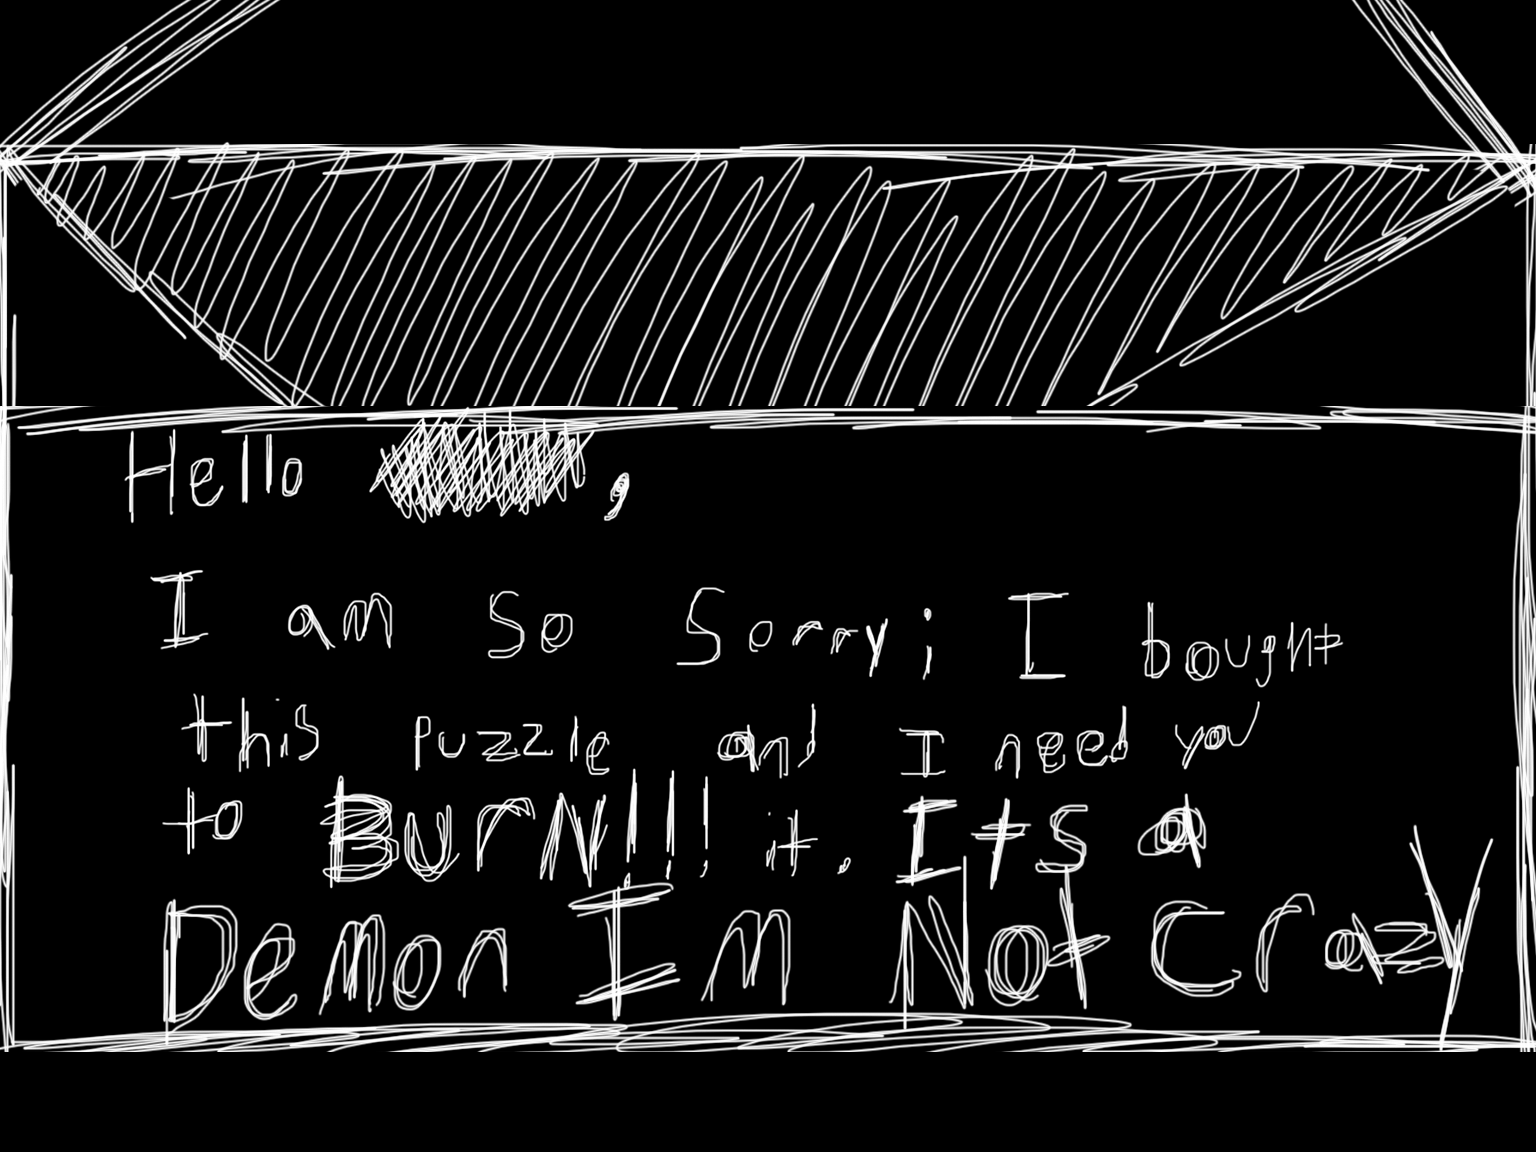 Hello ,
I am so Sorry; I bought
this puzzle and I need you
to BurN!!! it. Its a
Demon Im Not Crazy